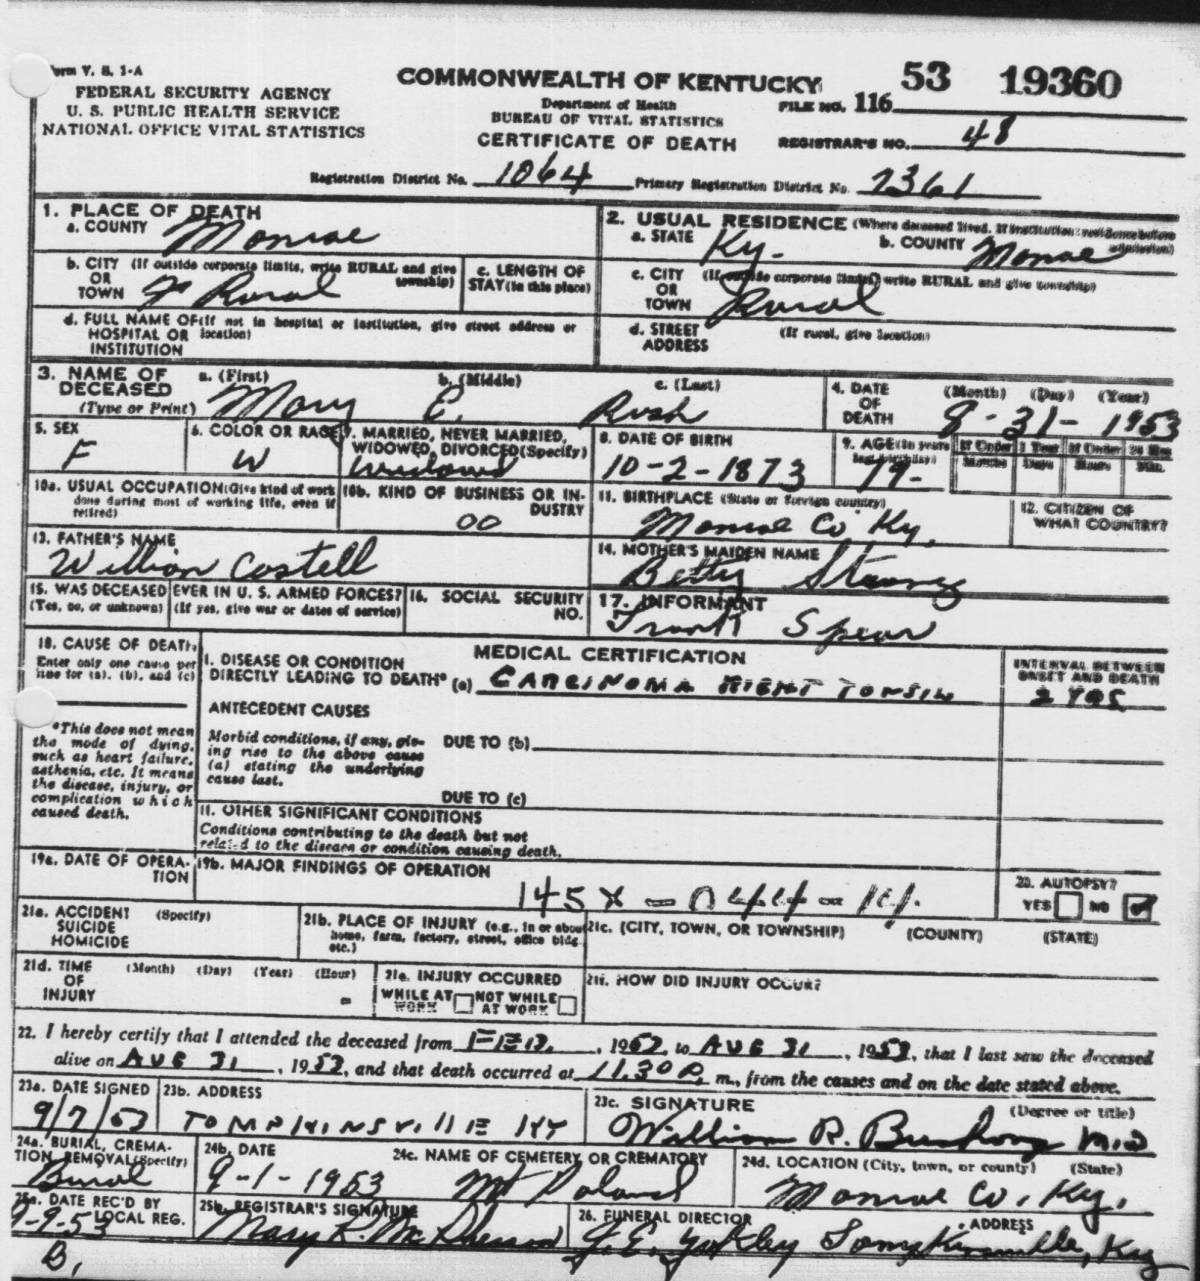 Form V. S. 1-A
FEDERAL SECURITY AGENCY
U. S. PUBLIC HEALTH SERVICE
NATIONAL OFFICE VITAL STATISTICS
COMMONWEALTH OF KENTUCKY
Department of Health
BUREAU OF VITAL STATISTICS
CERTIFICATE OF DEATH
53 19360
FILE NO. 116
REGISTRAR'S NO. 48
Registration District No. 1064 Primary Registration District No. 7361
1. PLACE OF DEATH
a. COUNTY Monroe
b. CITY (If outside corporate limits, write RURAL and give township)
OR
TOWN Rural
c. LENGTH OF STAY (in this place)
d. FULL NAME OF (If not in hospital or institution, give street address or location)
HOSPITAL OR
INSTITUTION
2. USUAL RESIDENCE (Where deceased lived. If institution: residence before admission)
a. STATE Ky. b. COUNTY Monroe
c. CITY (If outside corporate limits, write RURAL and give township)
OR
TOWN Rural
d. STREET (If rural, give location)
ADDRESS
3. NAME OF DECEASED
(Type or Print)
a. (First) b. (Middle) c. (Last)
Mary E. Rush
4. DATE OF DEATH (Month) (Day) (Year)
8-31-1953
5. SEX
F
6. COLOR OR RACE
W
7. MARRIED, NEVER MARRIED,
WIDOWED, DIVORCED (Specify)
8. DATE OF BIRTH
10-2-1873
9. AGE (In years last birthday)
79-
If Under 1 Year If Under 24 Hrs.
Months Days Hours Min.
10a. USUAL OCCUPATION (Give kind of work
done during most of working life, even if
retired)
10b. KIND OF BUSINESS OR INDUSTRY
00
11. BIRTHPLACE (State or foreign country)
Monroe Co Ky.
12. CITIZEN OF
WHAT COUNTRY?
13. FATHER'S NAME
Willian Costell
14. MOTHER'S MAIDEN NAME
Betty
15. WAS DECEASED EVER IN U. S. ARMED FORCES?
(Yes, no, or unknown) (If yes, give war or dates of service)
16. SOCIAL SECURITY
NO.
17. INFORMANT
Frank Spear
18. CAUSE OF DEATH
Enter only one cause per
line for (a), (b), and (c)
*This does not mean
the mode of dying,
such as heart failure,
asthenia, etc. It means
the disease, injury, or
complication which
caused death.
MEDICAL CERTIFICATION
INTERVAL BETWEEN
ONSET AND DEATH
I. DISEASE OR CONDITION
DIRECTLY LEADING TO DEATH* (a) CARCINOMA RIGHT TONSIL
2 YRS
ANTECEDENT CAUSES
Morbid conditions, if any, giving
rise to the above cause
(a) stating the underlying
cause last.
DUE TO (b)
DUE TO (c)
II. OTHER SIGNIFICANT CONDITIONS
Conditions contributing to the death but not
related to the disease or condition causing death.
19a. DATE OF OPERATION
19b. MAJOR FINDINGS OF OPERATION
145X
20. AUTOPSY?
YES NO
21a. ACCIDENT (Specify)
SUICIDE
HOMICIDE
21b. PLACE OF INJURY (e.g., in or about
home, farm, factory, street, office bldg.
etc.)
21c. (CITY, TOWN, OR TOWNSHIP) (COUNTY) (STATE)
21d. TIME (Month) (Day) (Year) (Hour)
OF
INJURY
21e. INJURY OCCURRED
WHILE AT WORK NOT WHILE AT WORK
21f. HOW DID INJURY OCCUR?
22. I hereby certify that I attended the deceased from FEB, to AUG 31, 1953, that I last saw the deceased
alive on AUG 31, 1953, and that death occurred at 11.30 P. m., from the causes and on the date stated above.
23a. DATE SIGNED
9/7/53
23b. ADDRESS
TOMPKINSVILLE KY
23c. SIGNATURE (Degree or title)
William R. Bushong M.D
24a. BURIAL, CREMATION,
REMOVAL (Specify)
Burial
24b. DATE
9-1-1953
24c. NAME OF CEMETERY OR CREMATORY
Mt Poland
24d. LOCATION (City, town, or county) (State)
Monroe Co. Ky.
25a. DATE REC'D BY
LOCAL REG.
9-9-53
25b. REGISTRAR'S SIGNATURE
Mary R. McPherson
26. FUNERAL DIRECTOR ADDRESS
J. E. Yokley Tompkinsville, Ky
B.